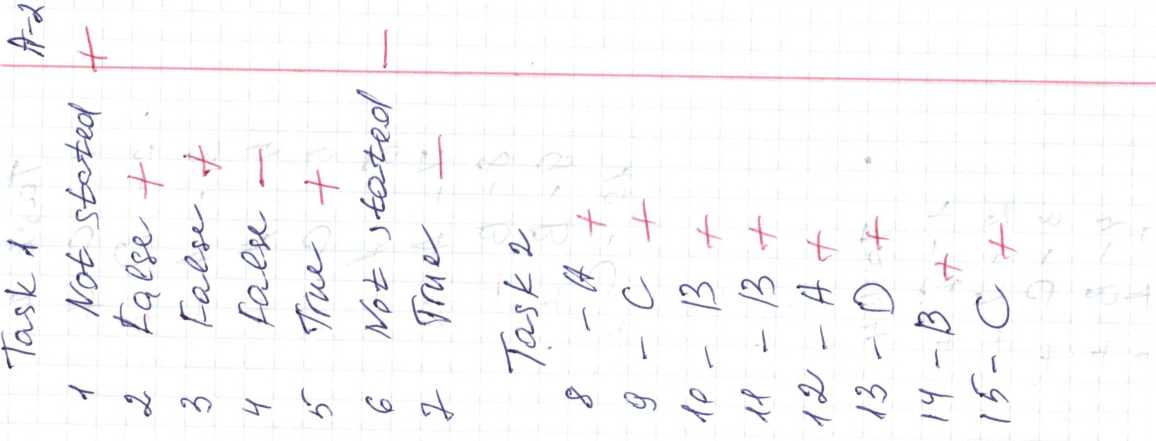 A-2
Task 1
1 Not stated +
2 False +
3 False +
4 False −
5 True +
6 Not stated −
7 True −
Task 2
8 - A +
9 - C +
10 - B +
11 - B +
12 - A +
13 - D +
14 - B +
15 - C +